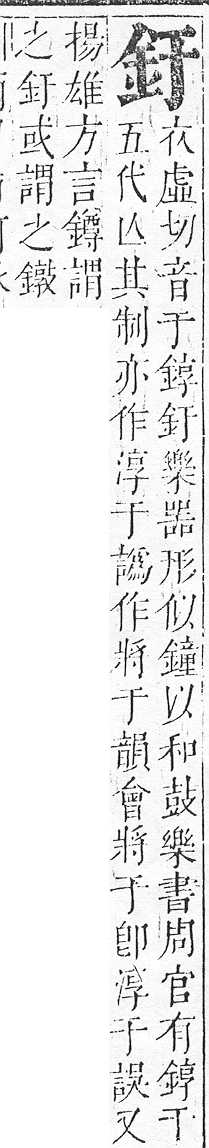 釪
衣虛切音于錞釪樂器形似鐘以和鼓樂書周官有錞于
五代亾其制亦作淳于譌作將于韻會將于卽淳于誤又
揚雄方言鐏謂
之釪或謂之鐓